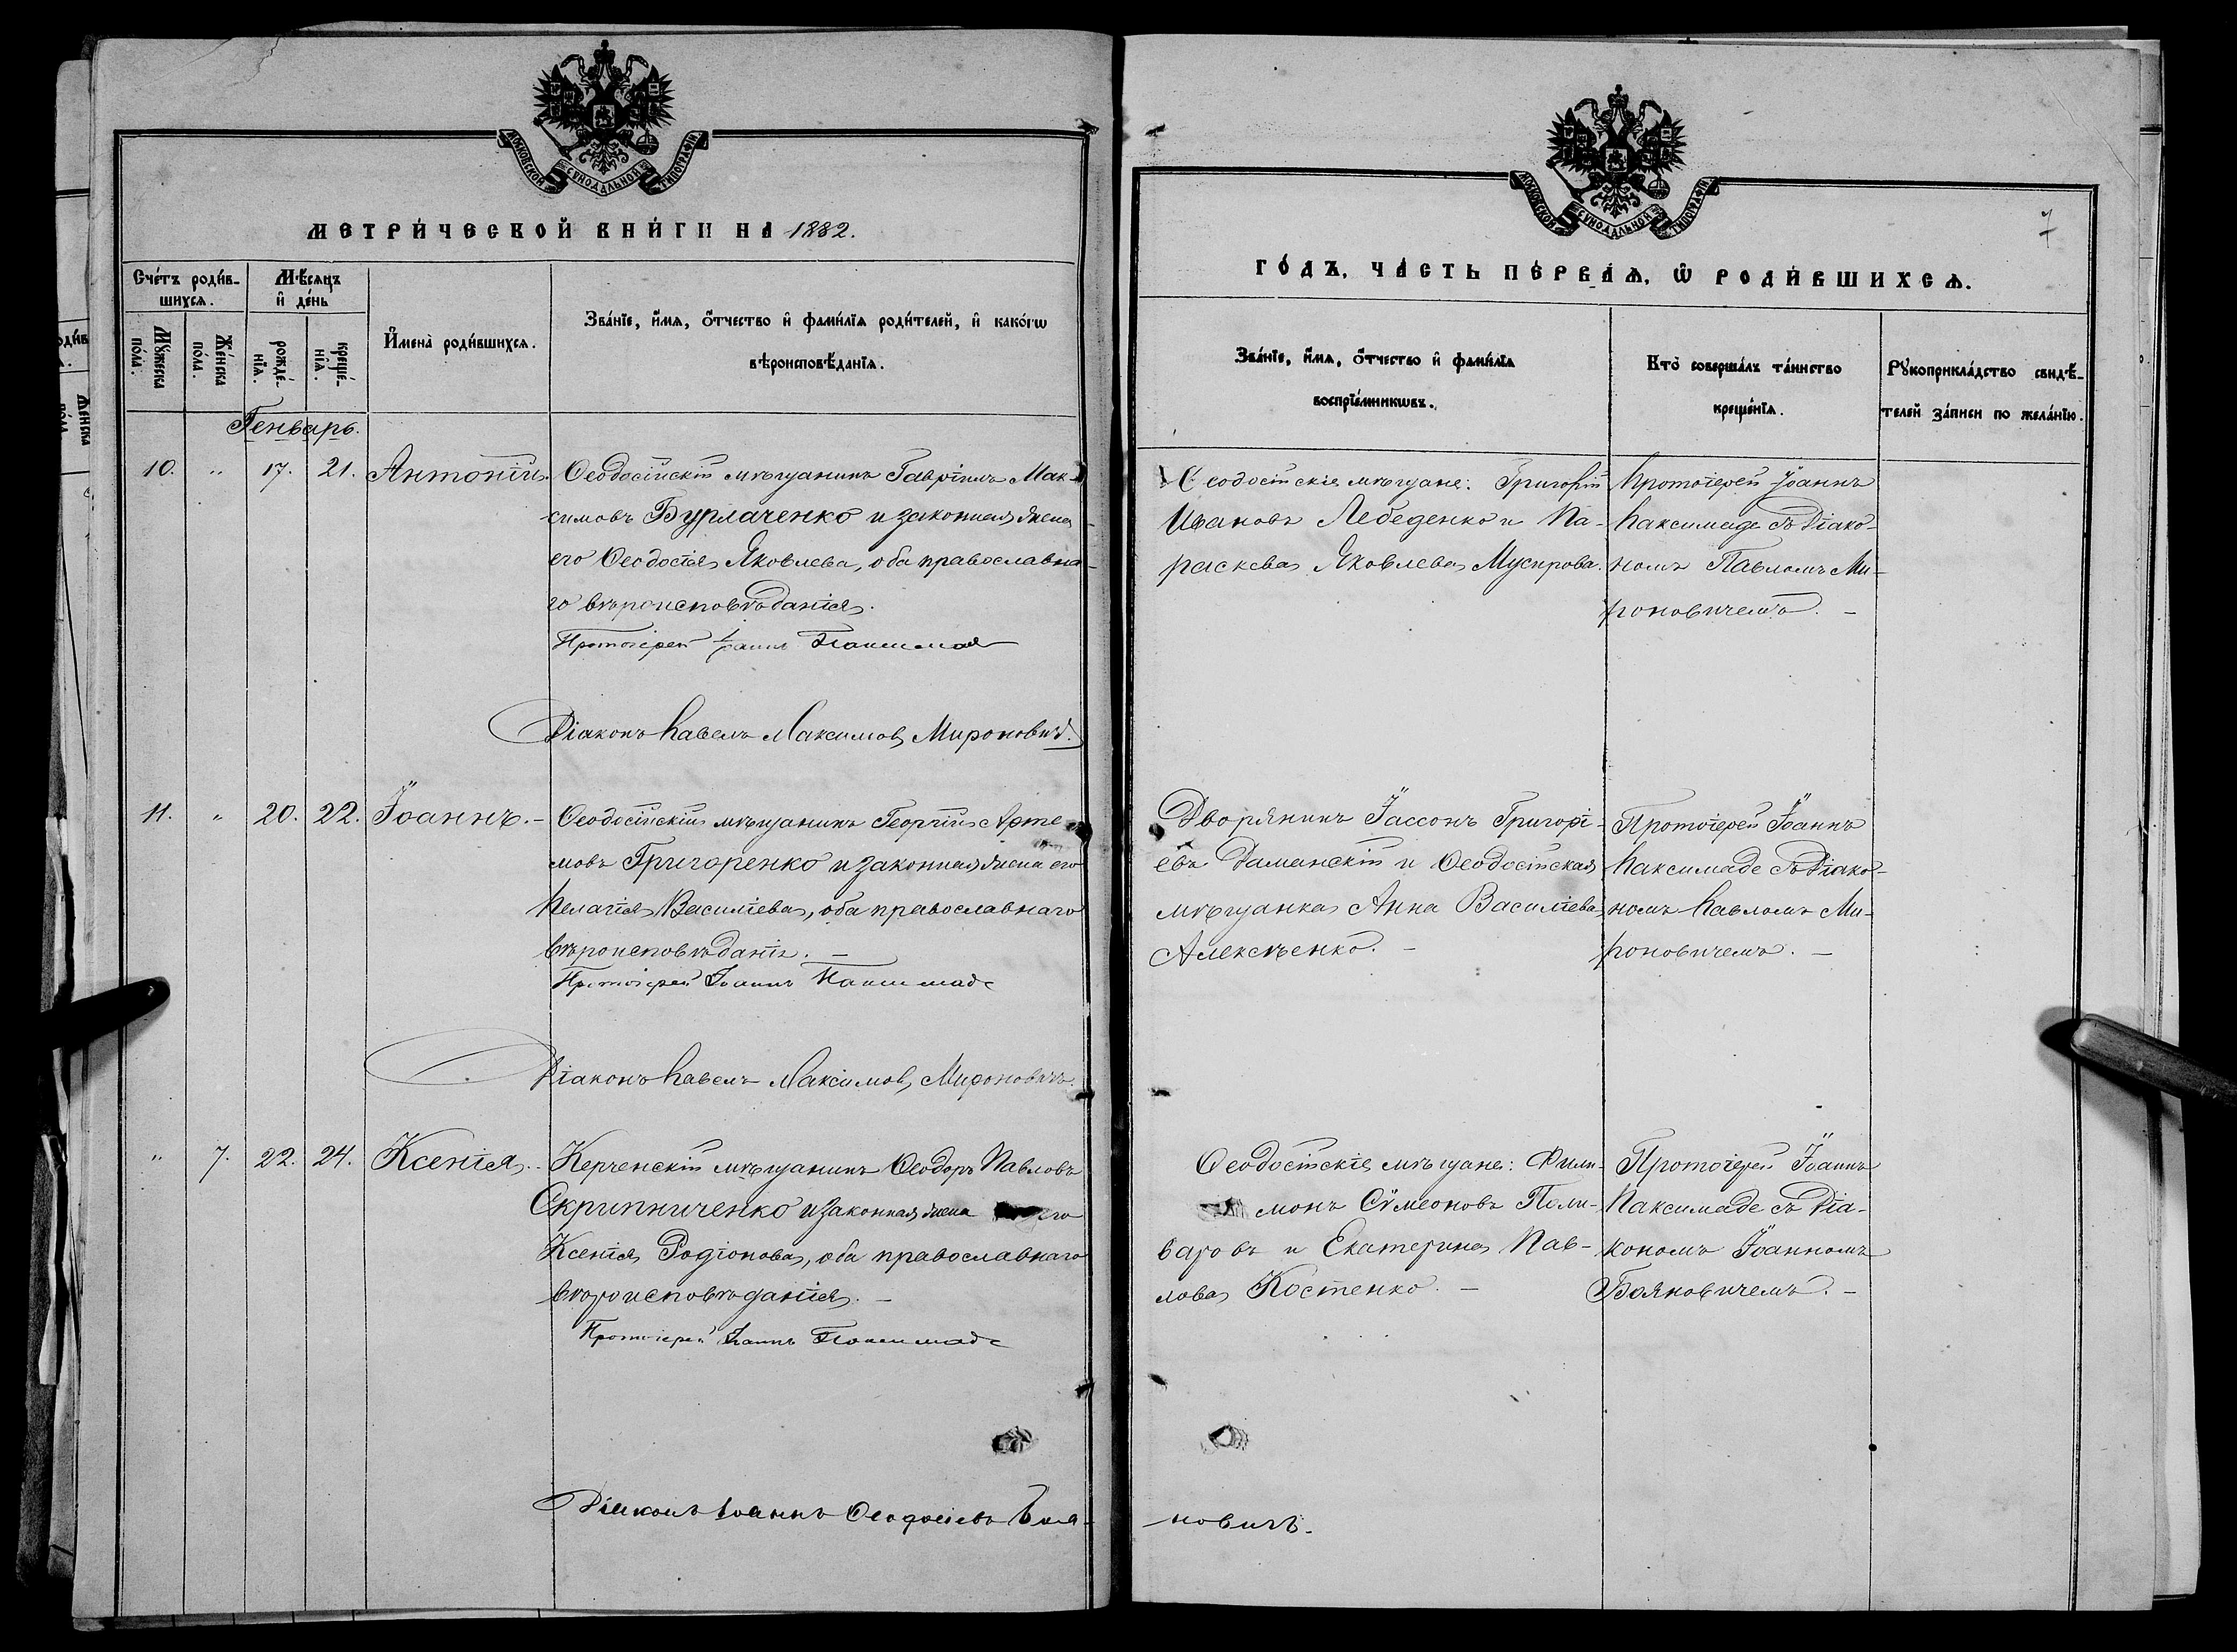 МОСКОВСКОЙ СѴНОДАЛЬНОЙ ТИПОГРАФІИ
МЕТРИ́ЧЕСКОЙ КНИ́ГИ НА 1882.
Сче́тъ роди́в-
шихсѧ.
Мѣ́сѧцъ
и҆ де́нь
Мꙋ́жеска
по́ла.
Же́нска
по́ла.
рожде́-
нїѧ.
креще́-
нїѧ.
И҆мена̀ роди́вшихсѧ.
Зва́нїе, и҆́мѧ, ѻ҆́тчество и҆ фами́лїѧ роди́телей, и҆ како́гѡ
вѣроисповѣ́данїѧ.
Генварь.
10. " 17. 21. Антоній.
Ѳеодосійскій мѣщанинъ Гавріилъ Мак-
симовъ Бурлаченко и законная жена
его Ѳеодосія Яковлева, оба православна-
го вѣроисповѣданія.
Протоіерей Іоаннъ Паксимаде
Діаконъ Павелъ Максимов. Мироновичъ.
11. " 20. 22. Іоаннъ.-
Ѳеодосійскій мѣщанинъ Георгій Арте-
мовъ Григоренко и законная жена его
Пелагія Василіева, оба православнаго
вѣроисповѣданія. -
Протоіерей Іоаннъ Паксимаде
Діаконъ Павелъ Максимов. Мироновичъ.
" 7. 22. 24. Ксенія.-
Керченскій мѣщанинъ Ѳеодоръ Павловъ
Скрипниченко и законная жена его
Ксенія Родіонова, оба православнаго
вѣроисповѣданія. -
Протоіерей Іоаннъ Паксимаде
Діаконъ Іоаннъ Ѳеодосіевъ Боя-
МОСКОВСКОЙ СѴНОДАЛЬНОЙ ТИПОГРАФІИ
7
ГО́ДЪ, ЧА́СТЬ ПЕ́РВАѦ, Ѽ РОДИ́ВШИХСѦ.
Зва́нїе, и҆́мѧ, ѻ҆́тчество и҆ фами́лїѧ
воспрїе́мникѡвъ.
Кто̀ соверша́лъ та́инство
креще́нїѧ.
Рꙋкоприкла́дство свидѣ́-
телей за́писи по жела́нїю.
Ѳеодосійскіе мѣщане: Григорій
Ивановъ Лебеденко и Па-
раскева Яковлева Мусирова.
Протоіерей Іоаннъ
Паксимаде съ Діако-
номъ Павломъ Ми-
роновичемъ. -
Дворянинъ Іассонъ Григорі-
евъ Даманскій и Ѳеодосійская
мѣщанка Анна Василіева
Алексѣенко. -
Протоіерей Іоаннъ
Паксимаде съ Діако-
номъ Павломъ Ми-
роновичемъ. -
Ѳеодосійскіе мѣщане: Фили-
монъ Сѵмеоновъ Поли-
варовъ и Екатерина Пав-
лова Костенко. -
Протоіерей Іоаннъ
Паксимаде съ Діа-
кономъ Іоанномъ
Бояновичемъ. -
новичъ.